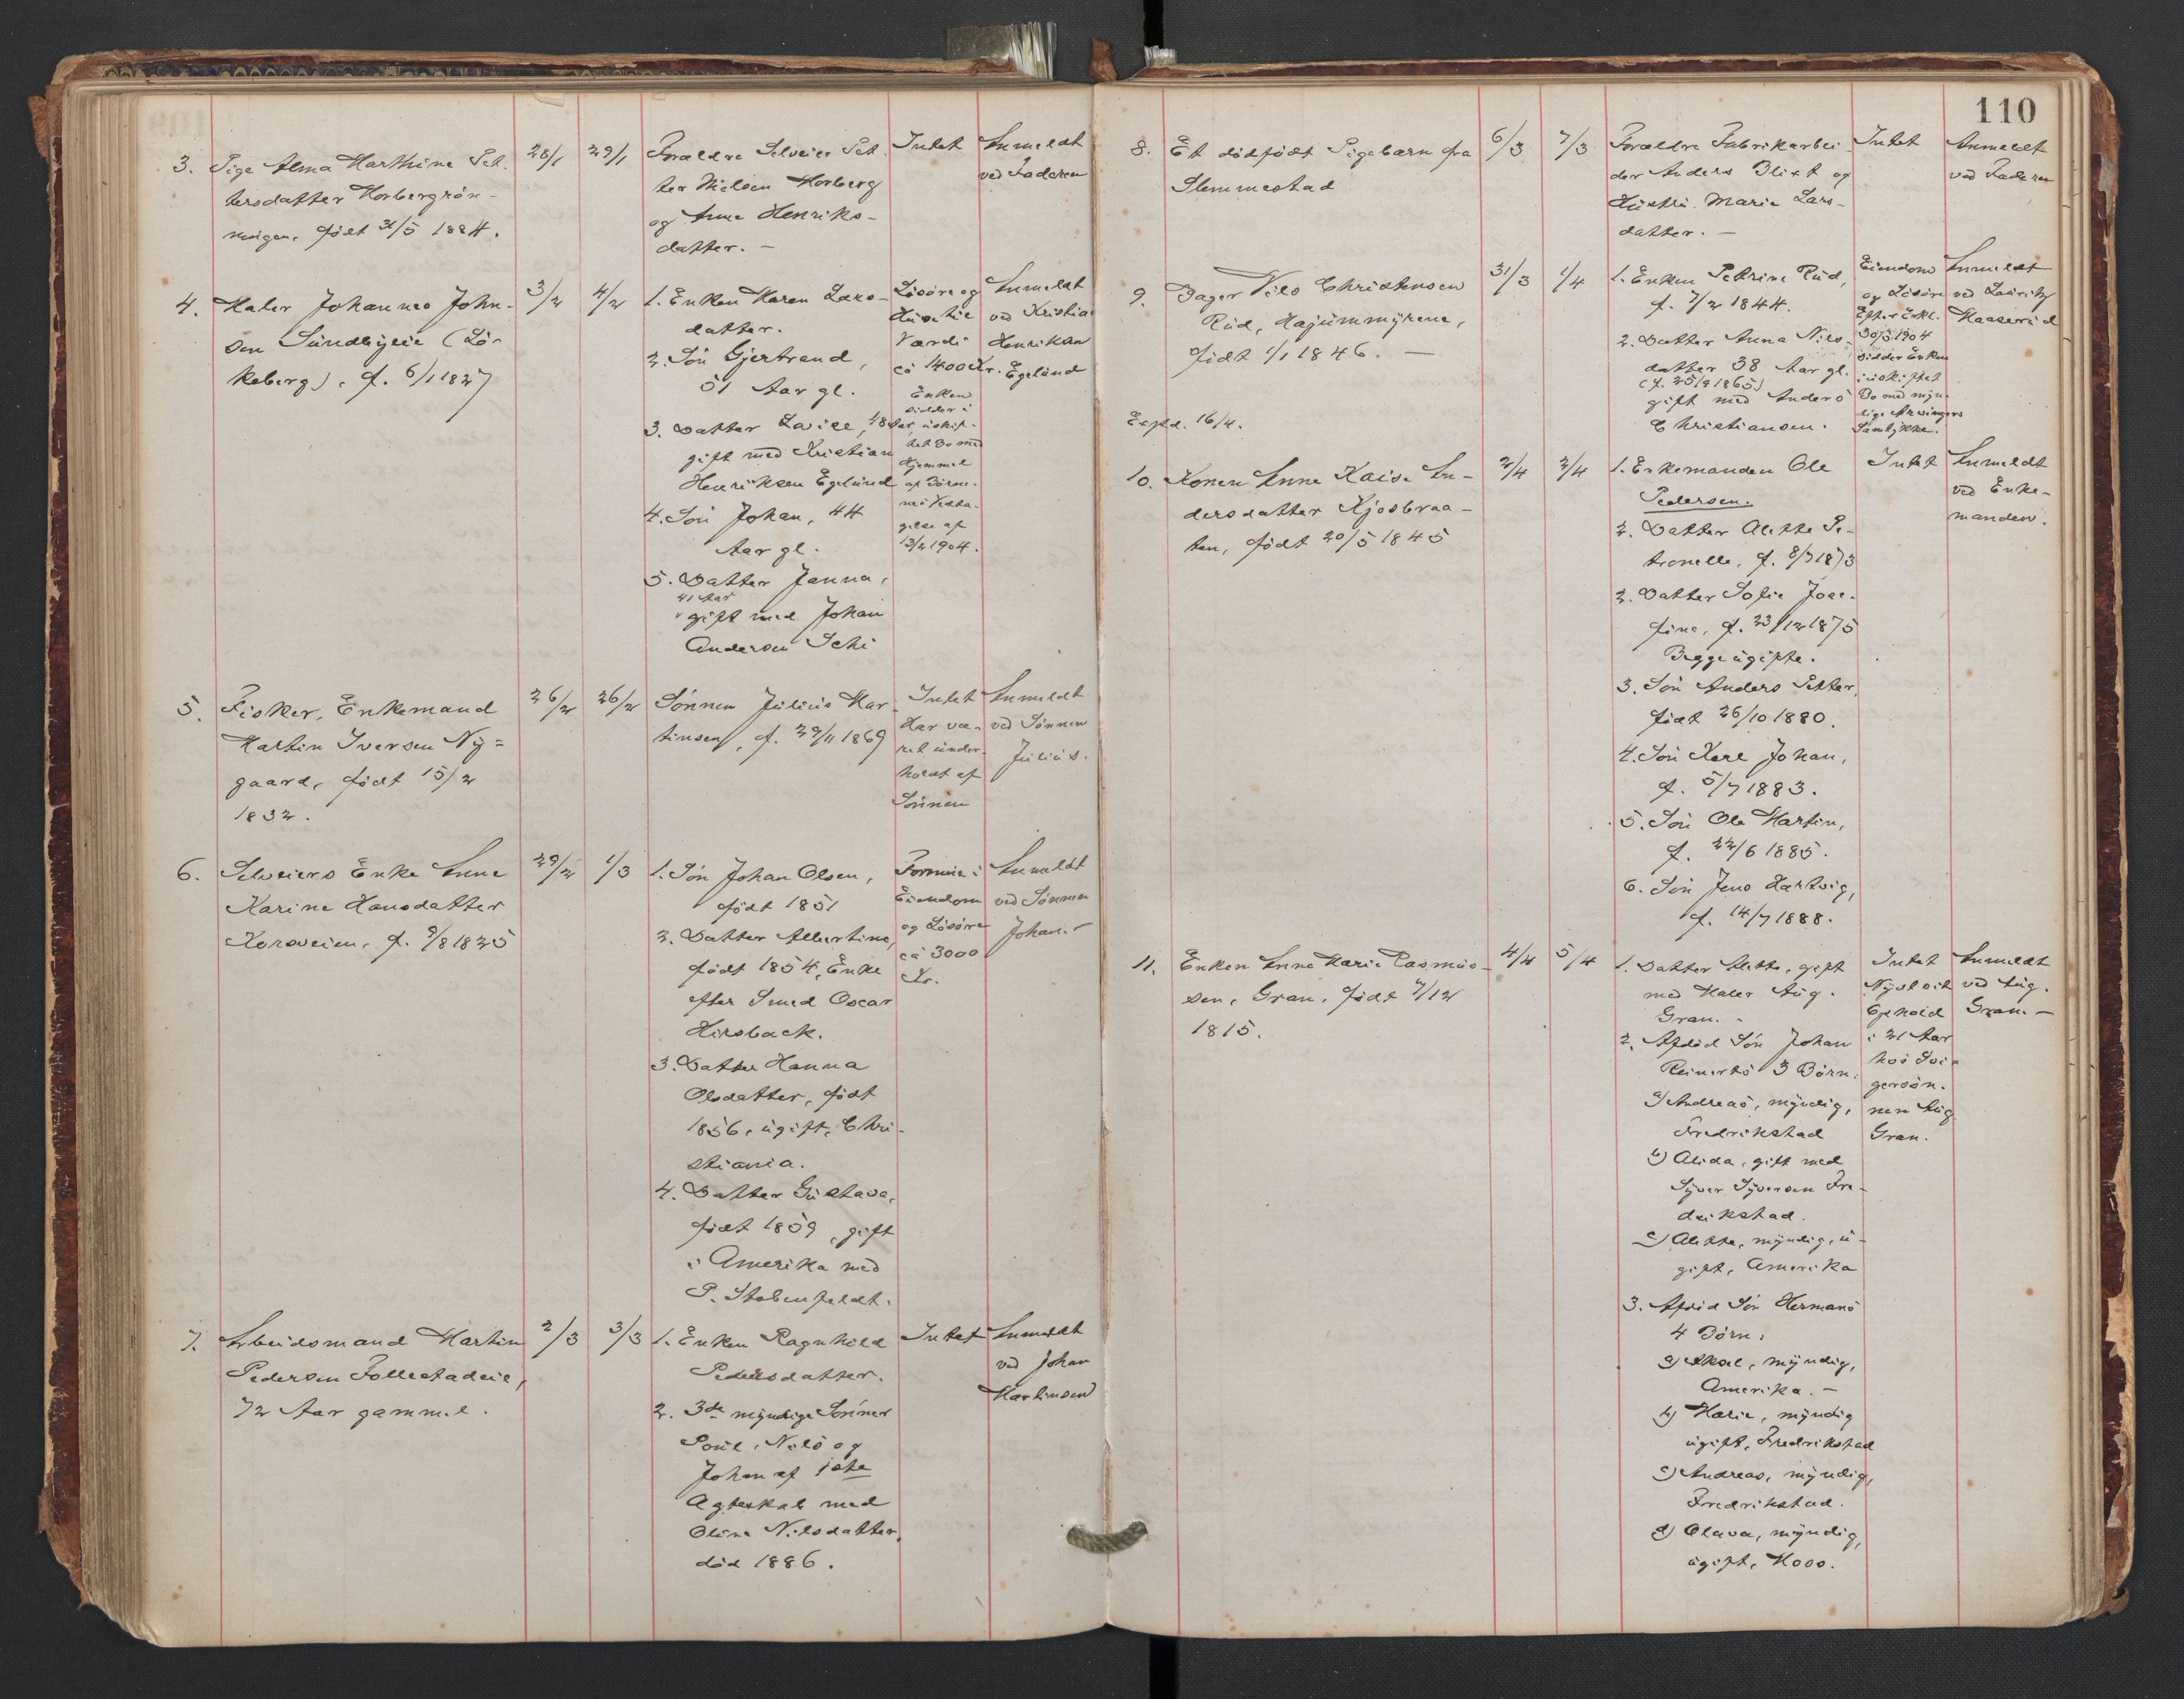 110
3. Pige Alma Marthine Pet-
tersdatter Morbergrön-
ningen, födt 31/5 1884.
28/1
29/1
Forældre Selveier Pet-
ter Nielsen Morberg
og Anne Henriks-
datter. —
Intet
Anmeldt
ved Faderen
4. Maler Johannes John-
sen Sundbyeie (Lö-
keberg), f. 6/1 1827
3/2
4/2
1. Enken Maren Lars-
datter.
2. Sön Gjertrand,
51 Aar gl.
3. Datter Lovise, 48 Aar,
gift med Kristian
Henriksen Egelund
4. Sön Johan, 44
Aar gl.
5. Datter Janna,
41 Aar
gift med Johan
Andersen Schi
Lösöre og
Hüsetie
Værdi
ca 1400 Kr.
Enken
sidder i
uskif-
tet Bo med
Hjemmel
af Börne-
nes Vedta-
gelse af
13/2 1904.
Anmeldt
ved Kristian
Henriksen
Egelund
5. Fisker, Enkemand
Martin Iversen Ny=
gaard, födt 15/2
1832.
26/2
26/2
Sönnen Julius Mar-
tinsen, f. 29/11 1869
Intet
Har væ-
ret under-
holdt af
Sönnen
Anmeldt
ved Sönnen
Julius.
6. Selveiers Enke Anne
Karine Hansdatter
Korsveien, f. 9/8 1825
29/2
1/3
1. Sön Johan Olsen,
födt 1851
2. Datter Albertine,
födt 1854, Enke
efter Smed Oscar
Hirsback.
3. Datter Hanna
Olsdatter, födt
1856, ugift, Chri-
stiania.
4. Datter Gustava,
födt 1859, gift
i Amerika med
P. Stabenfeldt.
Formue i
Eiendom
og Lösöre
ca 3000
Kr.
Anmeldt
ved Sönnen
Johan. —
7. Arbeidsmand Martin
Pedersen Follestadeie,
72 Aar gammel.
2/3
3/3
1. Enken Ragnhild
Pedersdatter.
2. 3de myndige Sönner
Poul, Nils og
Johan af 1ste
Ægteskab med
Oline Nilsdatter,
död 1886.
Intet
Anmeldt
ved Johan
Martinsen
8. Et dödfödt Pigebarn fra
Slemmestad
6/3
7/3
Forældre Fabrikarbei-
der Anders Blixt og
Hustru Marie Lars-
datter. —
Intet
Anmeldt
ved Faderen
9. Bager Nils Christensen
Rüd, Hajummyrene,
födt 1/1 1846. —
Expd. 16/4.
31/3
1/4
1. Enken Petrine Rüd,
f. 7/2 1844.
2. Datter Anna Nils-
datter 38 Aar gl.
(f. 25/9 1865)
gift med Anders
Christiansen.
Eiendom
og Lösöre
Efter Erkl.
30/5 1904
sidder Enken
i uskiftet
Bo med myn-
dige Arvingers
Samtykke.
Anmeldt
ved Lauritz
Haaserud
10. Konen Anne Kaisa An-
dersdatter Kjosbraa-
ten, födt 20/5 1845
2/4
2/4
1. Enkemanden Ole
Pedersen.
2. Datter Alette Pe-
tronelle, f. 8/7 1873
2. Datter Sofie Jose-
fine, f. 23/12 1875
Begge ugifte.
3. Sön Anders Petter,
födt 26/10 1880.
4. Sön Karl Johan,
f. 5/7 1883.
5. Sön Ole Martin,
f. 22/6 1885.
6. Sön Jens Hartvig,
f. 14/7 1888.
Intet
Anmeldt
ved Enke-
manden.
11. Enken Anne Marie Rasmus-
sen, Gran, födt 4/12
1815.
4/4
5/4
1. Datter Alette, gift
med Maler Aug.
Gran. -
2. Afdöd Sön Johan
Reinerts 3 Börn:
a) Andreas, myndig,
Fredrikstad
b) Alida, gift med
Syver Syversen Fre-
drikstad.
c) Alette, myndig, u-
gift, Amerika
3. Afdöd Sön Hermans
4 Börn:
a) Aksel, myndig,
Amerika. —
b) Marie, myndig
ugift, Fredrikstad
c) Andreas, myndig,
Fredrikstad.
d) Olava, myndig,
ugift, Moss.
Intet
Nydt sit
Ophold
i 21 Aar
hos Svi-
gersön-
nen Aug.
Gran.
Anmeldt
ved Aug.
Gran. —